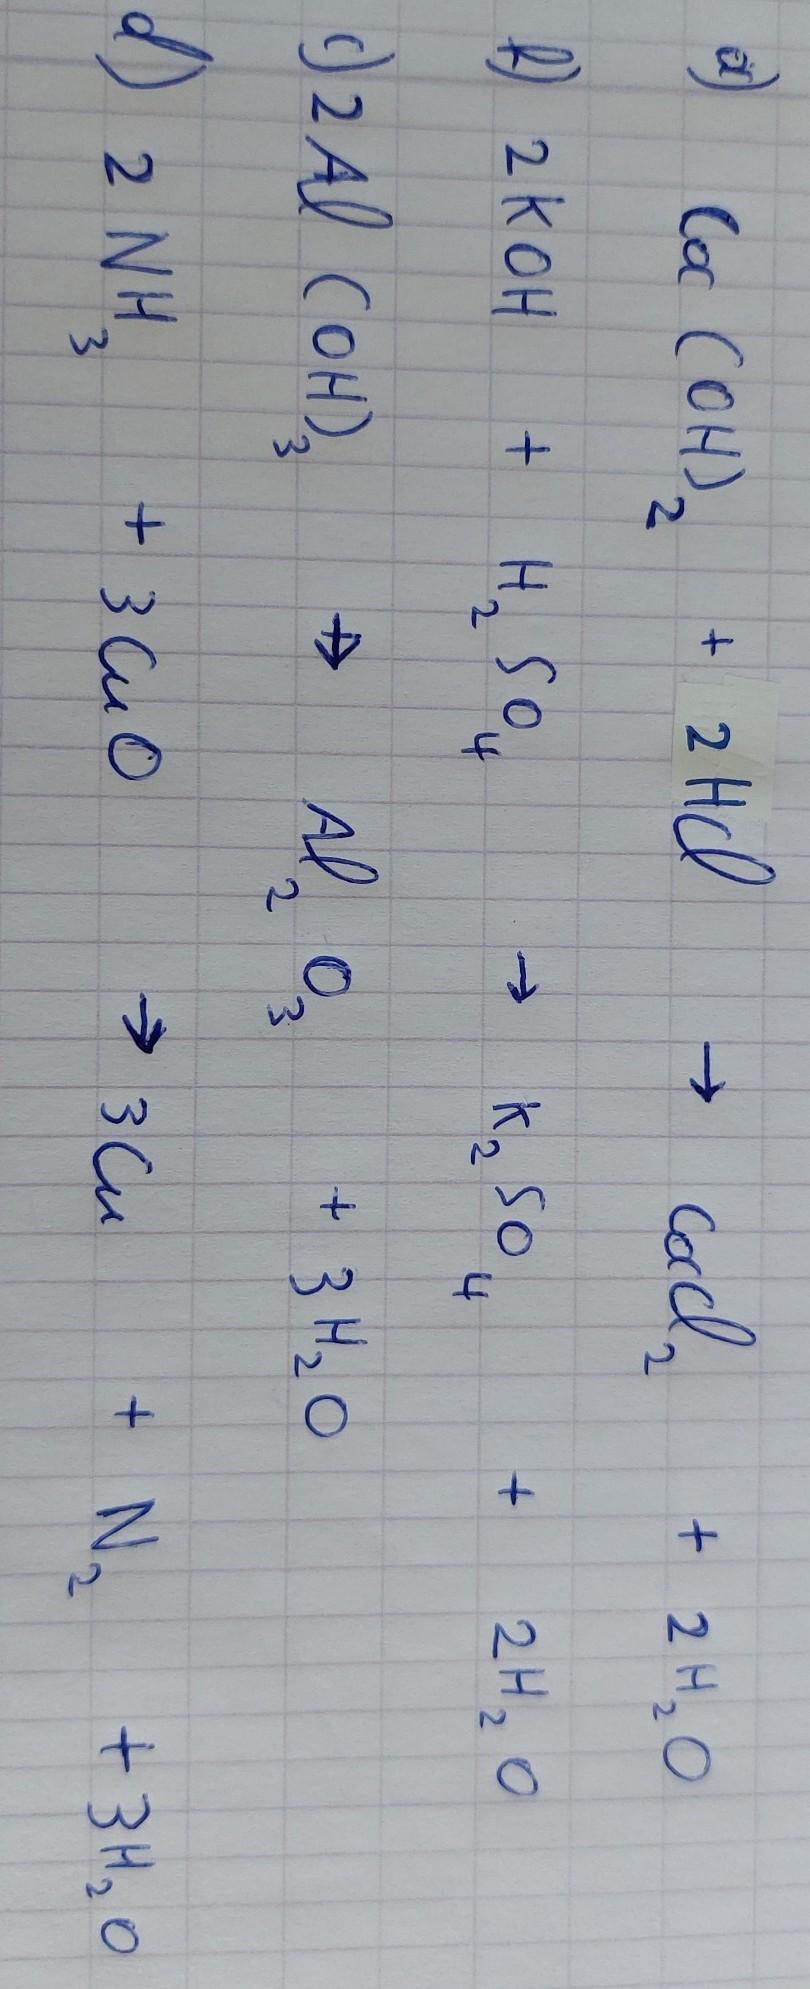 a) Ca(OH)₂ + 2HCl → CaCl₂ + 2H₂O
b) 2KOH + H₂SO₄ → K₂SO₄ + 2H₂O
c) 2Al(OH)₃ → Al₂O₃ + 3H₂O
d) 2NH₃ + 3CuO → 3Cu + N₂ + 3H₂O